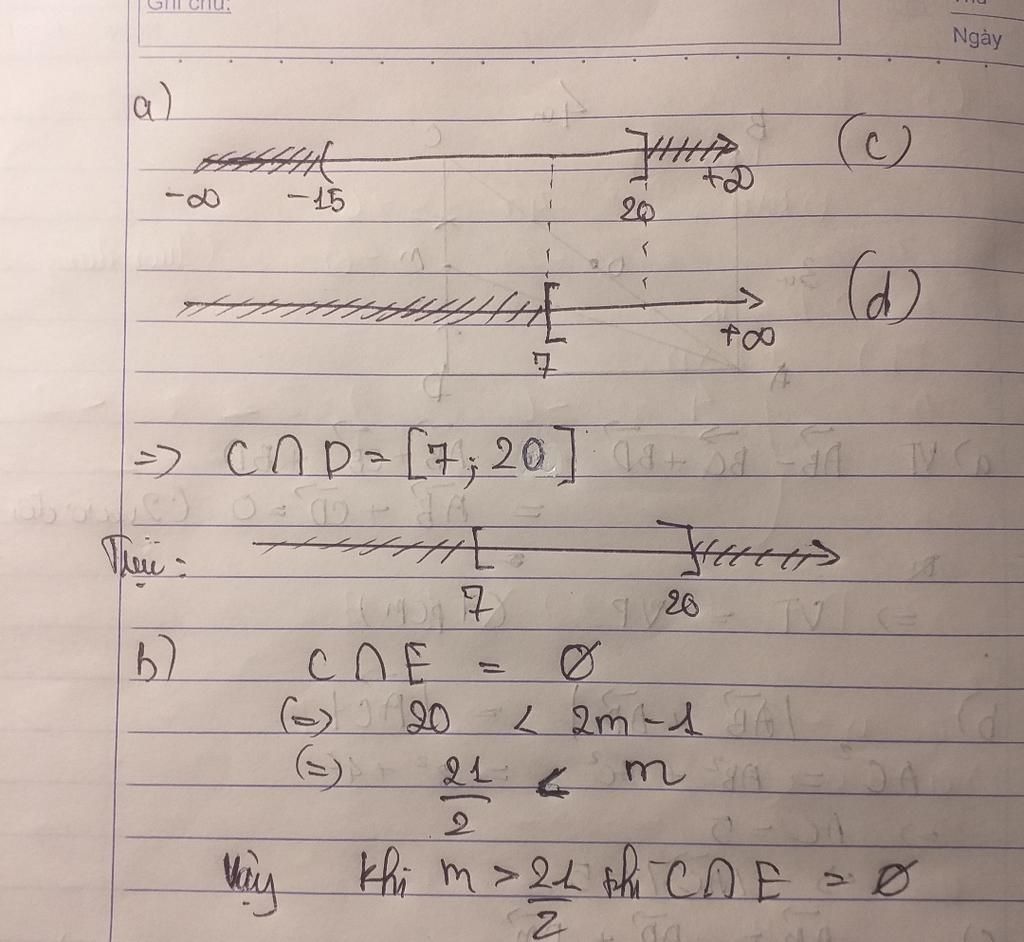 Ghi chú:
Thứ
Ngày
a)
-∞ -15 20 +∞ (C)
7 +∞ (d)
=> C∩D = [7; 20]
7 20
b) C∩E = ∅
(=) 20 < 2m-1
(=) 21/2 < m
Vậy khi m > 21/2 thì C∩E = ∅